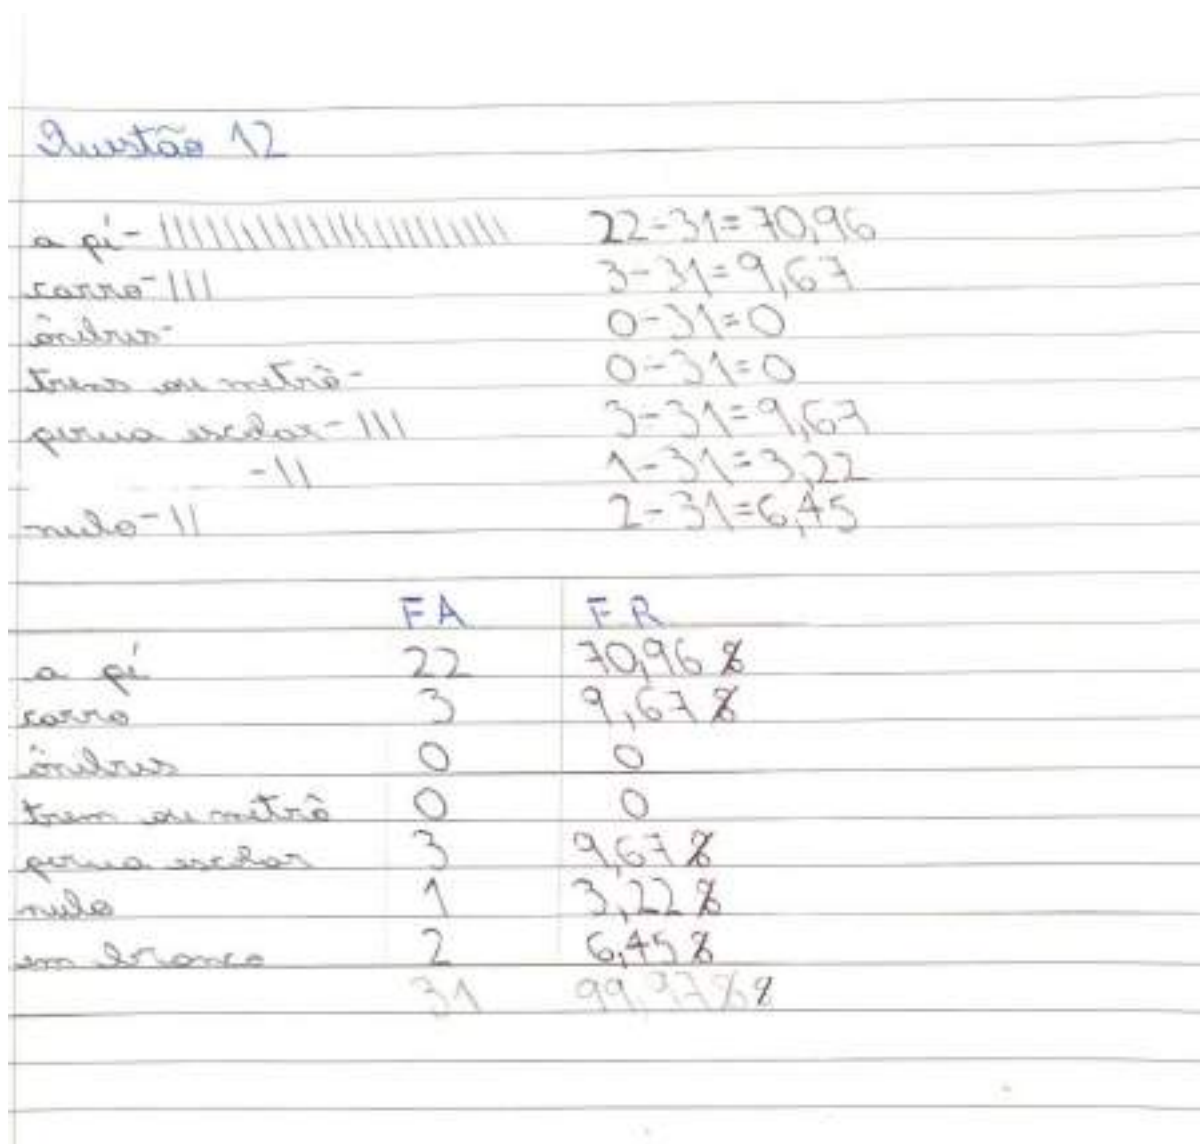 Questão 12
a pé - ||||||||||||||||||||||  22-31=70,96
carro - |||  3-31=9,67
ônibus -  0-31=0
trens ou metrô -  0-31=0
perua escolar - |||  3-31=9,67
- ||  1-31=3,22
nulo - ||  2-31=6,45
FA FR
a pé 22 70,96%
carro 3 9,67%
ônibus 0 0
trem ou metrô 0 0
perua escolar 3 9,67%
nulo 1 3,22%
em branco 2 6,45%
31